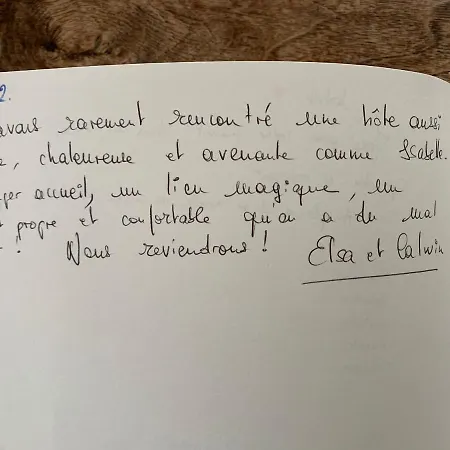 2.
avais rarement rencontré une hôte aussi
, chaleureuse et avenante comme Isabelle.
accueil, un lieu magique, un
propre et confortable qu'on a du mal
! Nous reviendrons ! Elsa et Calwin